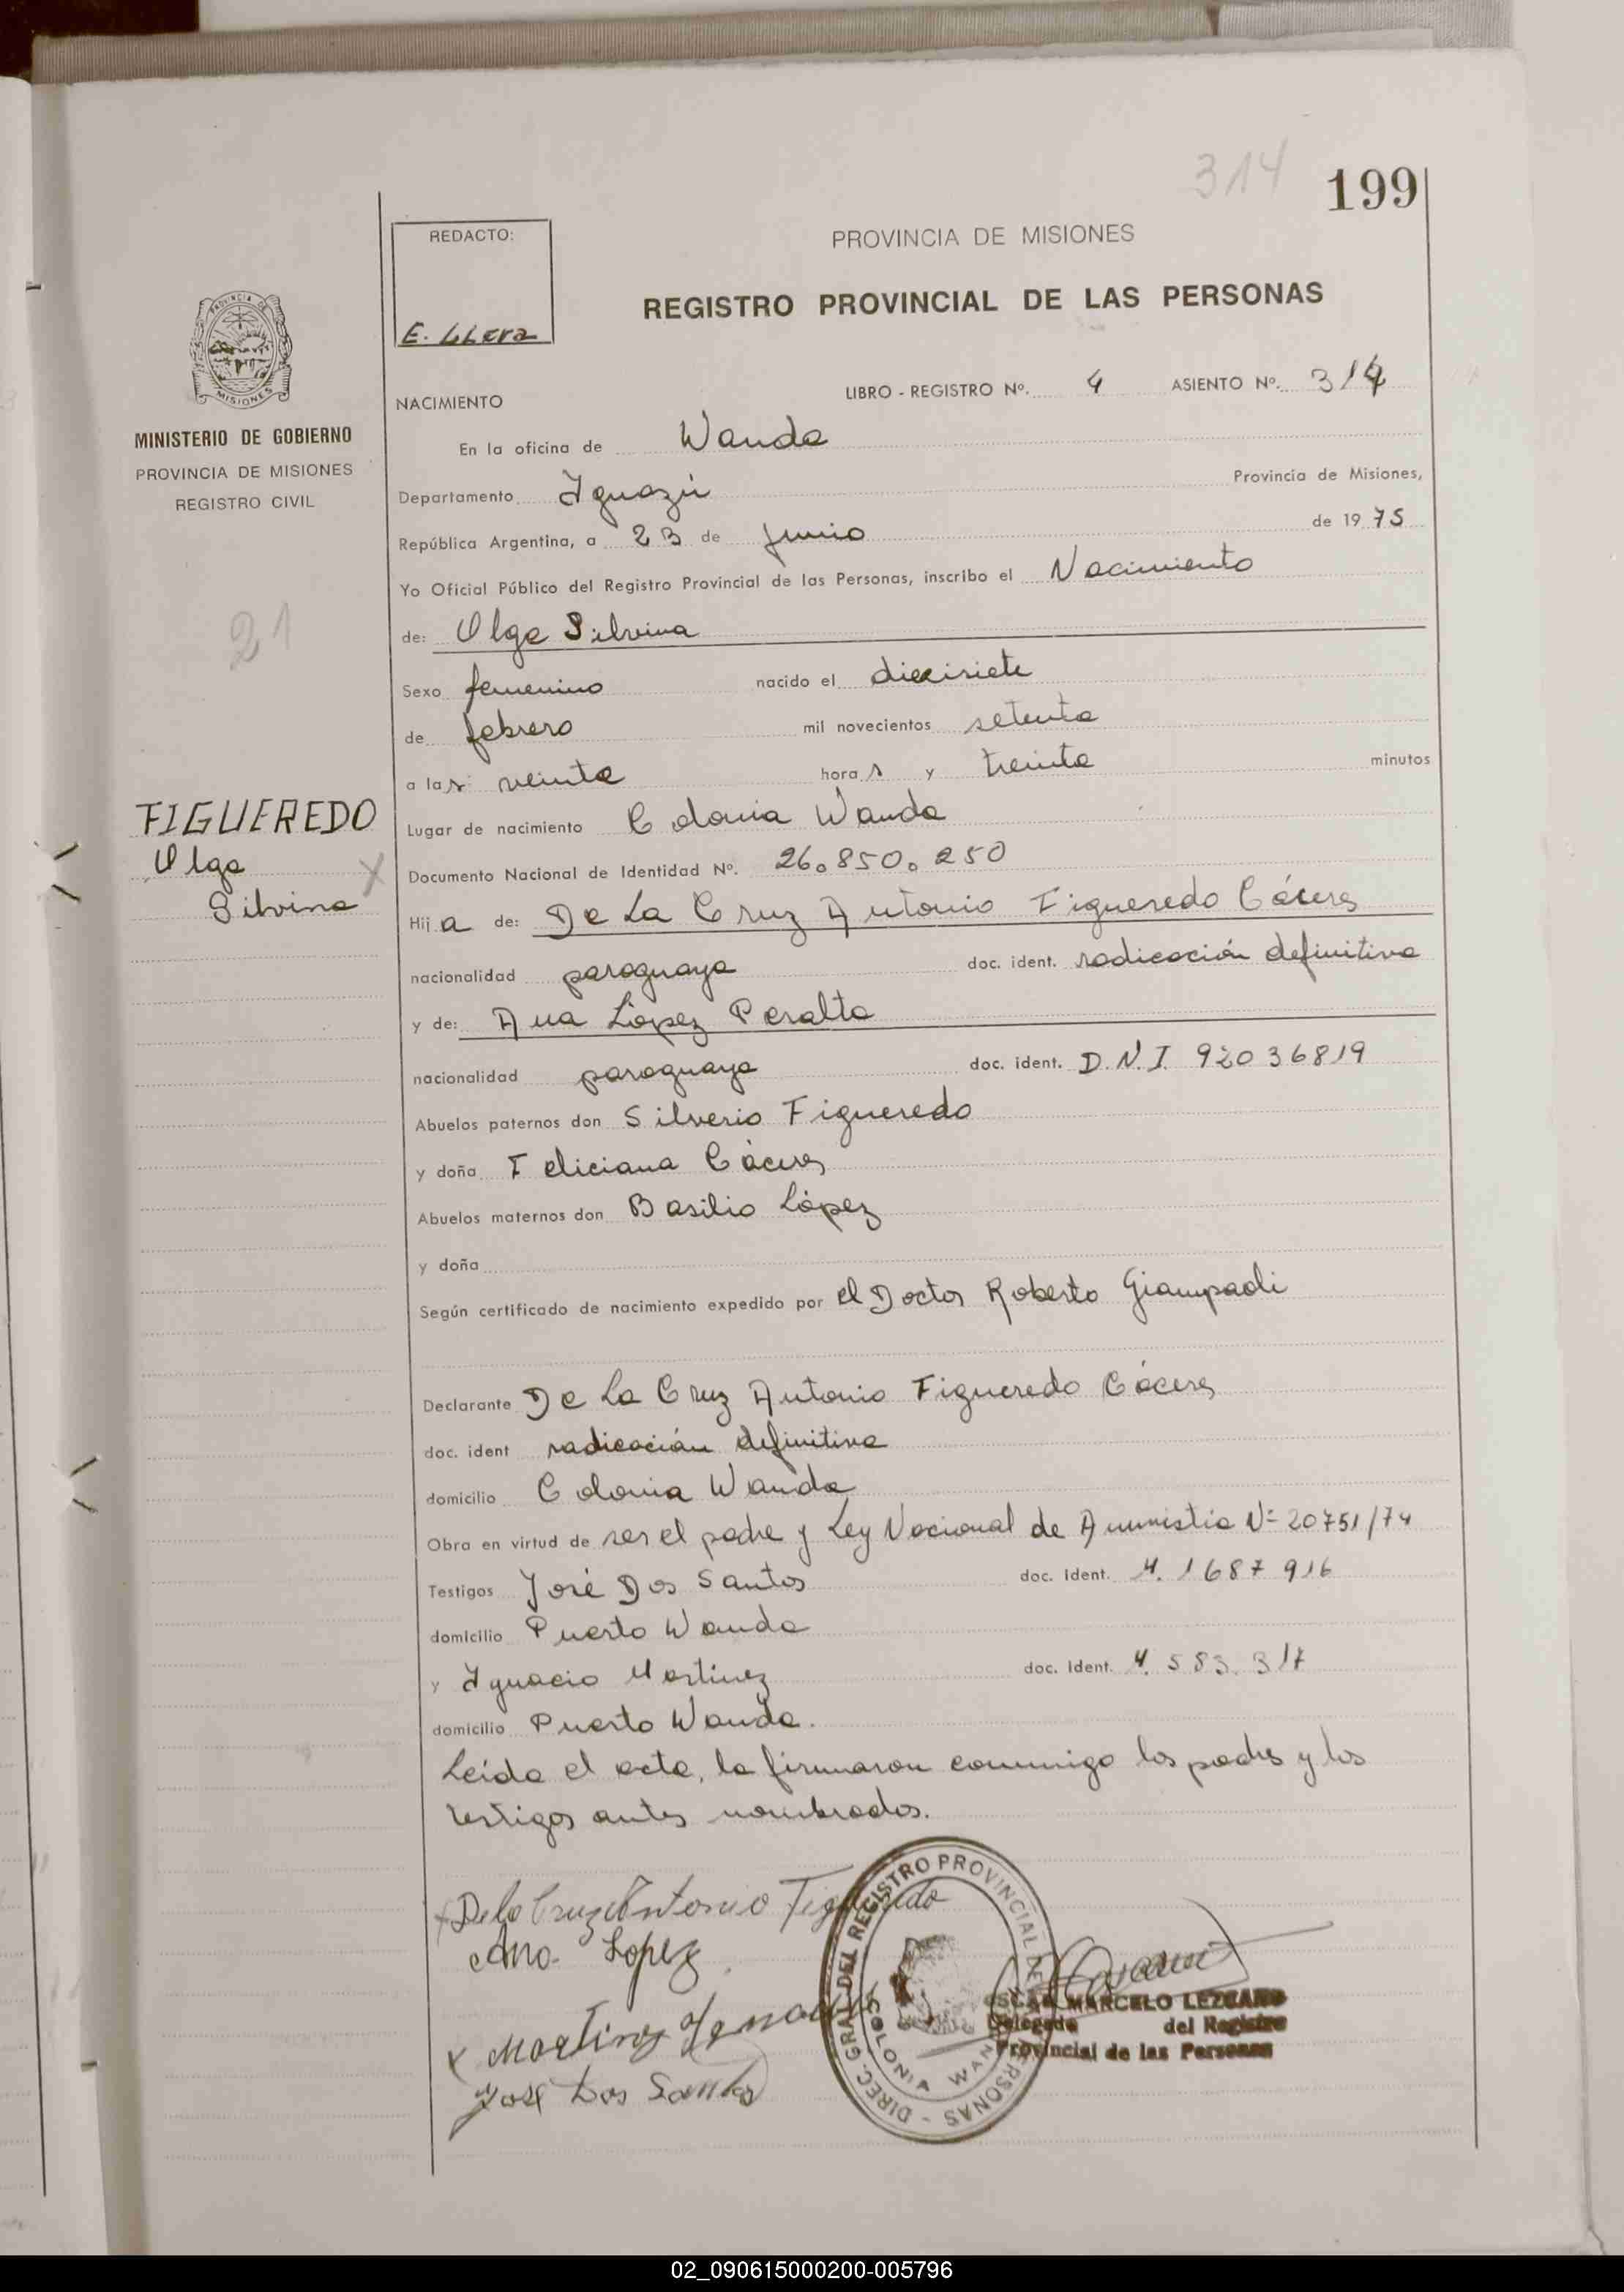 314 199
REDACTO:
E. LLera
PROVINCIA DE MISIONES
REGISTRO PROVINCIAL DE LAS PERSONAS
PROVINCIA DE
MISIONES
MINISTERIO DE GOBIERNO
PROVINCIA DE MISIONES
REGISTRO CIVIL
21
FIGUEREDO
Olga
Silvina
NACIMIENTO LIBRO - REGISTRO Nº. 4 ASIENTO Nº. 314
En la oficina de Wanda
Departamento Iguazú Provincia de Misiones,
República Argentina, a 23 de Junio de 1975
Yo Oficial Público del Registro Provincial de las Personas, inscribo el Nacimiento
de: Olga Silvina
Sexo femenino nacido el diecisiete
de febrero mil novecientos setenta
a las veinte horas y treinta minutos
Lugar de nacimiento Colonia Wanda
Documento Nacional de Identidad Nº. 26.850.250
Hija de: De La Cruz Antonio Figueredo Cáceres
nacionalidad paraguaya doc. ident. radicación definitiva
y de: Ana López Peralta
nacionalidad paraguaya doc. ident. D.N.I. 92036819
Abuelos paternos don Silverio Figueredo
y doña Feliciana Cáceres
Abuelos maternos don Basilio López
y doña
Según certificado de nacimiento expedido por el Doctor Roberto Giampaoli
Declarante De La Cruz Antonio Figueredo Cáceres
doc. ident radicación definitiva
domicilio Colonia Wanda
Obra en virtud de ser el padre y Ley Nacional de Amnistia Nº 20751/74
Testigos José Dos Santos doc. Ident. M. 1687916
domicilio Puerto Wanda
y Ignacio Martínez doc. Ident. M. 583.317
domicilio Puerto Wanda.
Leída el acta, la firmaron conmigo los padres y los
testigos antes nombrados.
De la Cruz Antonio Figueredo
Ana Lopez
x Martinez Ignacio
José Dos Santos
DIREC. GRAL DEL REGISTRO PROVINCIAL DE LAS PERSONAS -
COLONIA WANDA
OSCAR MARCELO LEZCANO
Delegado del Registro
Provincial de las Personas
02_090615000200-005796